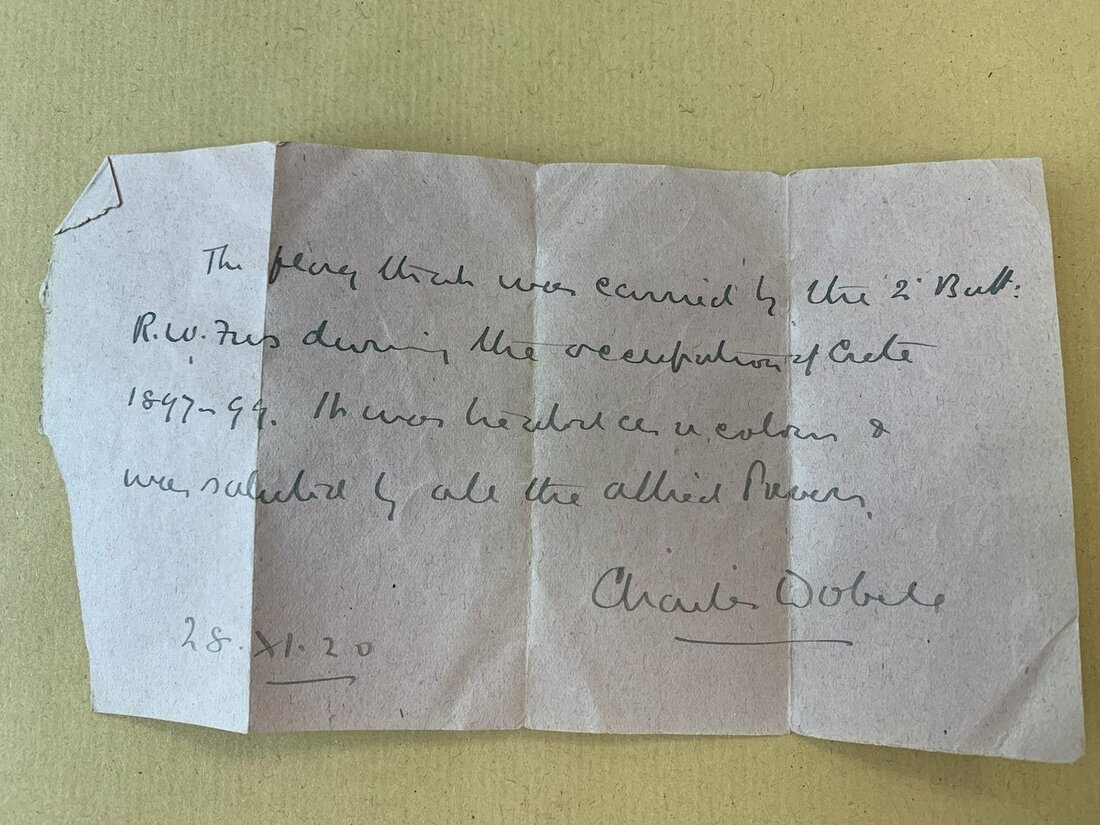 The flag that was carried by the 2° Batt:
R.W. Fus during the occupation of Crete
1897-99. It was treated as a colour &
was saluted by all the allied Powers.
Charles Dobell
28.XI.20